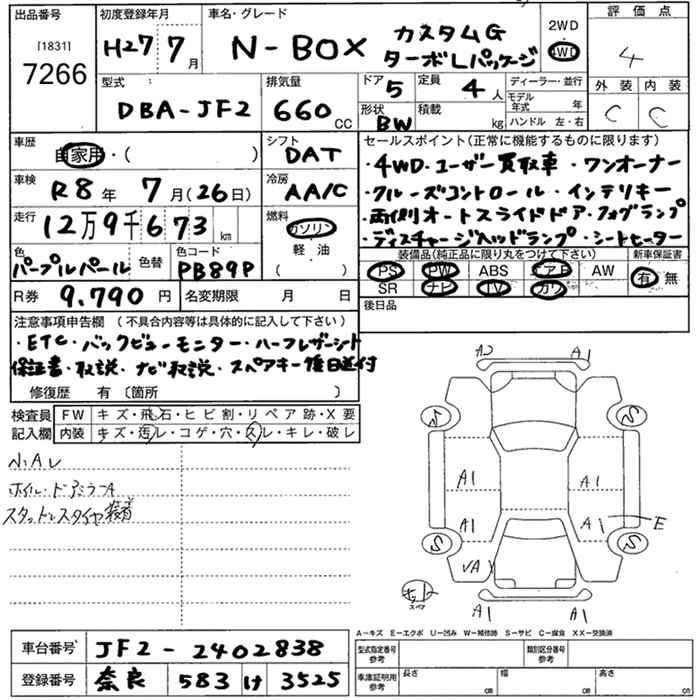 出品番号
[1831]
7266
初度登録年月
H27 7月
車名・グレード
N-BOX
カスタムG
ターボLパッケージ
2WD
4WD
評価点
4
外装 内装
C C
型式
DBA-JF2
排気量
660 CC
ドア 5
定員 4人
形状 BW
積載 kg
ディーラー・並行
モデル年式 年
ハンドル 左・右
車歴
自家用・( )
シフト
DAT
車検
R8年 7月(26日)
冷房
AA/C
走行
12万9千673 km
燃料
ガソリン
軽・油
( )
色
パープルパール
色替
色コード
PB89P
R券 9.790円
名変期限 月 日
セールスポイント(正常に機能するものに限ります)
・4WD・ユーザー買取車・ワンオーナー
・クルーズコントロール・インテリキー
・両側オートスライドドア・フォグランプ
・ディスチャージヘッドランプ・シートヒーター
装備品(純正品に限り丸をつけて下さい)
新車保証書
PS PW ABS エアB AW
SR ナビ TV カワ
有・無
後日品
注意事項申告欄 (不具合内容等は具体的に記入して下さい)
・ETC・バックビューモニター・ハーフレザーシート
保証書・取説・ナビ取説・スペアキー後日送付
修復歴 有 〔箇所 〕
検査員記入欄
FW キズ・飛石・ヒビ割・リペア跡・X要
内装 キズ・汚レ・コゲ・穴・スレ・キレ・破レ
小.A.レ
ホイル・ドアミラーA
スタットレスタイヤ装着
A2 A1
S S
A1 A1
A1 A1 E
S S
VA
スペア
A1 A1
A-キズ E-エクボ U-凹み W-補修跡 S-サビ C-腐食 XX-交換済
車台番号 JF2-2402838
登録番号 奈良 583 け 3525
型式指定番号 参考
類別区分番号 参考
車庫証明用 参考
長さ cm 幅 cm 高さ cm